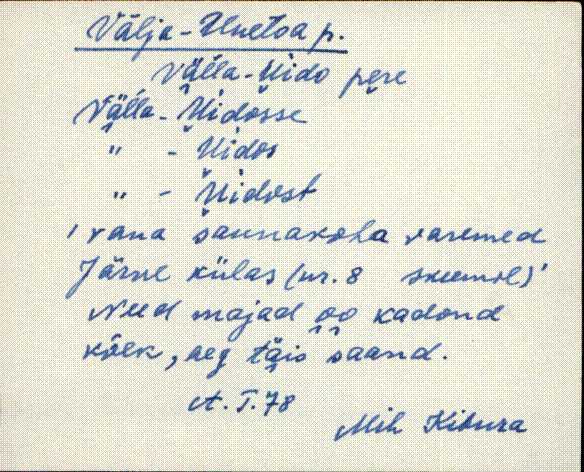 Välja-Unetoa p.
Välla-Üido pere
Välla-Üidosse
" - Üidos
" - Üidost
'vana saunakoha varemed
Järne külas (nr. 8 skeemil)'
Need majad oo kadond
kõik, aeg täis saand.
A. T. 78
Mih Kibura